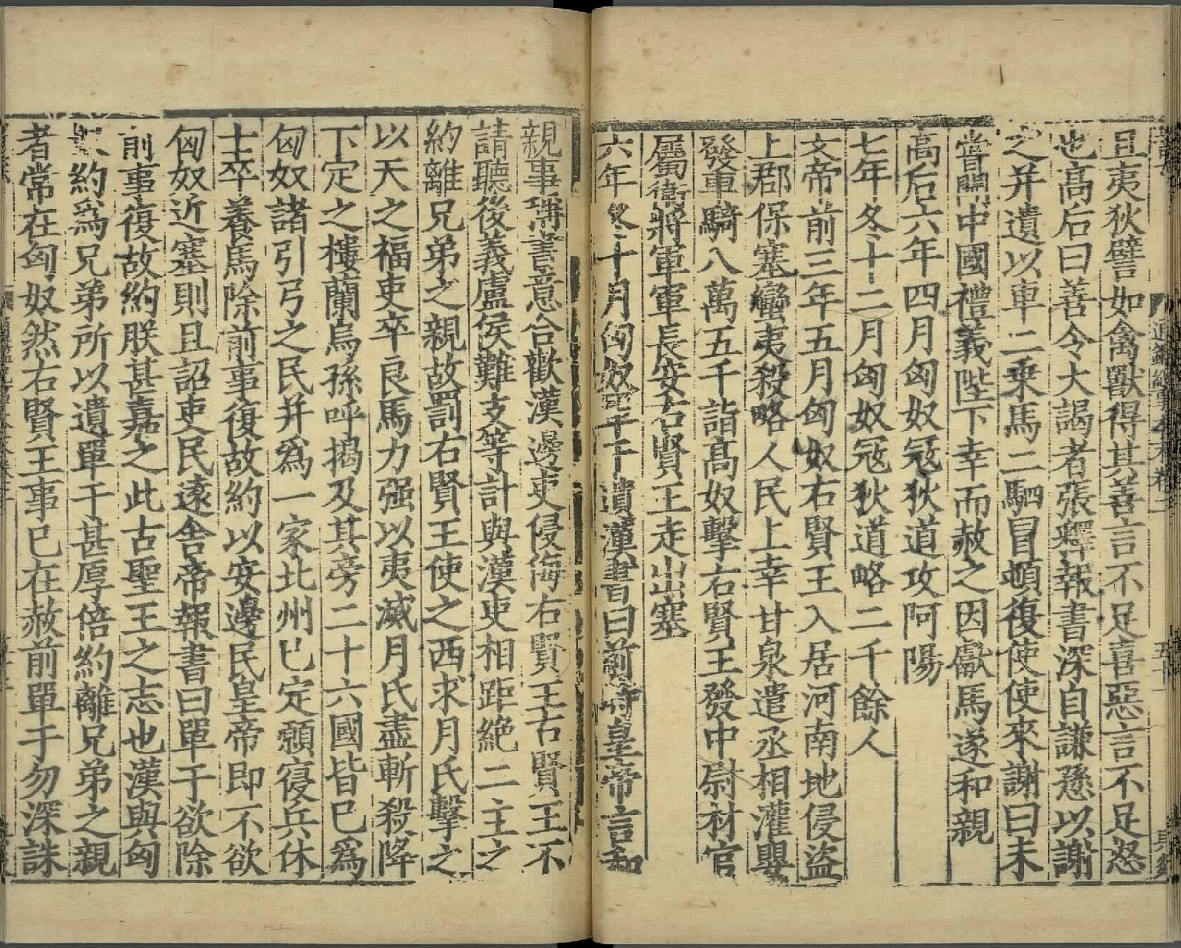 且夷狄譬如禽獸得其善言不足喜惡言不足怒
也高后曰善令大謁者張釋報書深自謙愻以謝
之并遺以車二乘馬二駟冒頓復使使來謝曰未
嘗聞中國禮義陛下幸而赦之因獻馬遂和親
高后六年四月匈奴寇狄道攻阿陽
七年冬十二月匈奴寇狄道略二千餘人
文帝前三年五月匈奴右賢王入居河南地侵盜
上郡保塞蠻夷殺略人民上幸甘泉遣丞相灌嬰
發車騎八萬五千詣高奴擊右賢王發中尉材官
屬衛將軍軍長安右賢王走出塞
六年冬十月匈奴單于遺漢書曰前時皇帝言和
親事稱書意合歡漢邊吏侵侮右賢王右賢王不
請聽後義盧侯難支等計與漢吏相距絶二主之
約離兄弟之親故罰右賢王使之西求月氏擊之
以天之福吏卒良馬力强以夷滅月氏盡斬殺降
下定之樓蘭烏孫呼揭及其旁二十六國皆已爲
匈奴諸引弓之民并爲一家北州已定願寑兵休
士卒養馬除前事復故約以安邊民皇帝即不欲
匈奴近塞則且詔吏民遠舍帝報書曰單于欲除
前事復故約朕甚嘉之此古聖王之志也漢與匈
約爲兄弟所以遺單于甚厚倍約離兄弟之親
者常在匈奴然右賢王事已在赦前單于勿深誅